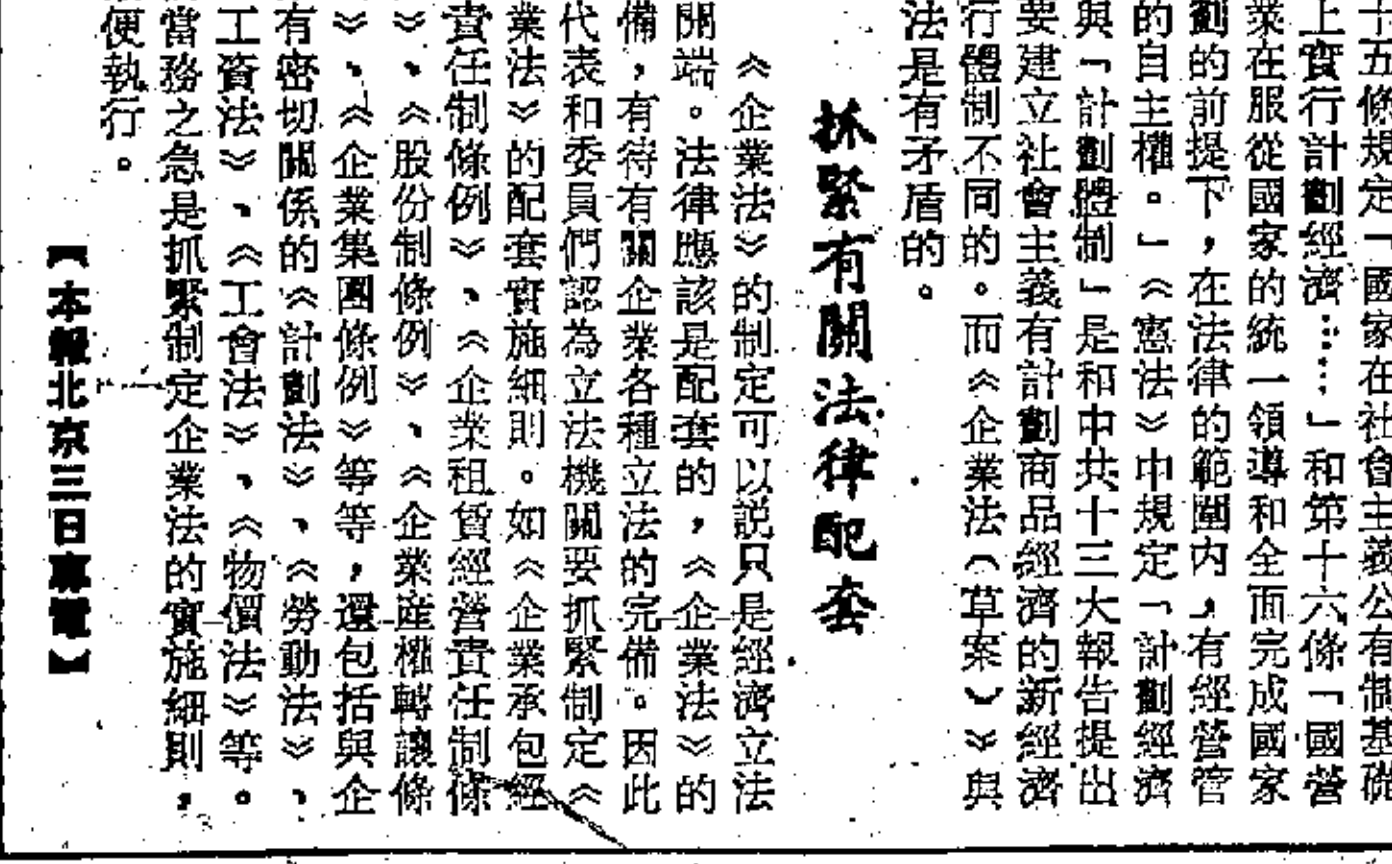 十五條規定「國家在社會主義公有制基礎
上實行計劃經濟……」和第十六條「國營
業在服從國家的統一領導和全面完成國家
劃的前提下，在法律的範圍内，有經營管
的自主權。」《憲法》中規定「計劃經濟
與「計劃體制」是和中共十三大報告提出
要建立社會主義有計劃商品經濟的新經濟
行體制不同的。而《企業法（草案）》與
法是有矛盾的。
抓緊有關法律配套
《企業法》的制定可以説只是經濟立法
開端。法律應該是配套的，《企業法》的
備，有待有關企業各種立法的完備。因此
代表和委員們認為立法機關要抓緊制定《
業法》的配套實施細則。如《企業承包經
責任制條例》、《企業租賃經營責任制條
》、《股份制條例》、《企業産權轉讓條
》、《企業集團條例》等等，還包括與企
有密切關係的《計劃法》、《勞動法》、
工資法》、《工會法》、《物價法》等。
當務之急是抓緊制定企業法的實施細則，
便執行。
【本報北京三日專電】